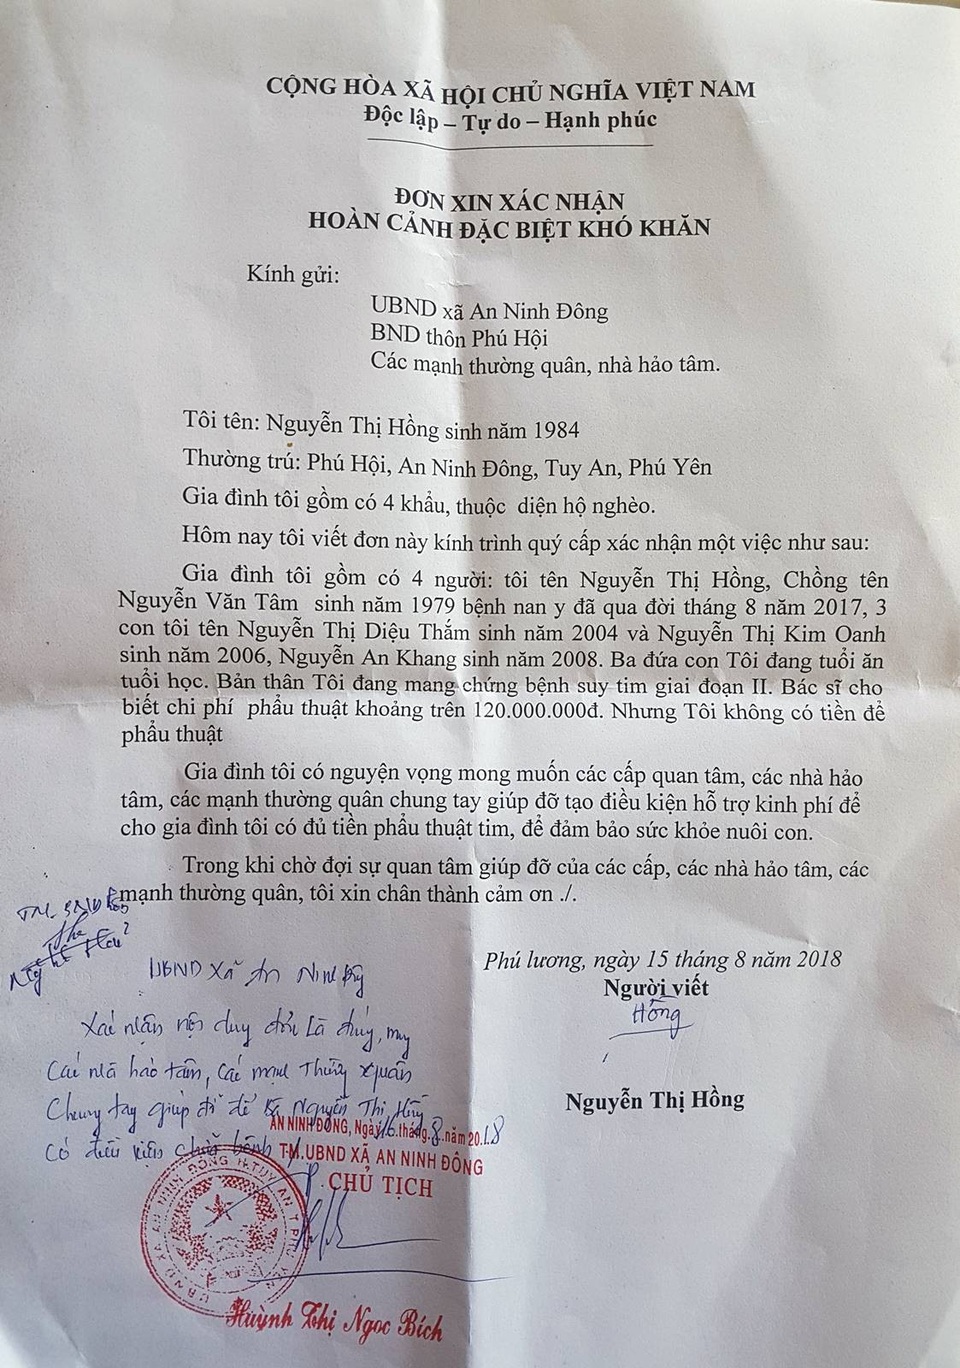 CỘNG HÒA XÃ HỘI CHỦ NGHĨA VIỆT NAM
Độc lập – Tự do – Hạnh phúc
ĐƠN XIN XÁC NHẬN
HOÀN CẢNH ĐẶC BIỆT KHÓ KHĂN
Kính gửi:
UBND xã An Ninh Đông
BND thôn Phú Hội
Các mạnh thường quân, nhà hảo tâm.
Tôi tên: Nguyễn Thị Hồng sinh năm 1984
Thường trú: Phú Hội, An Ninh Đông, Tuy An, Phú Yên
Gia đình tôi gồm có 4 khẩu, thuộc diện hộ nghèo.
Hôm nay tôi viết đơn này kính trình quý cấp xác nhận một việc như sau:
Gia đình tôi gồm có 4 người: tôi tên Nguyễn Thị Hồng, Chồng tên
Nguyễn Văn Tâm sinh năm 1979 bệnh nan y đã qua đời tháng 8 năm 2017, 3
con tôi tên Nguyễn Thị Diệu Thắm sinh năm 2004 và Nguyễn Thị Kim Oanh
sinh năm 2006, Nguyễn An Khang sinh năm 2008. Ba đứa con Tôi đang tuổi ăn
tuổi học. Bản thân Tôi đang mang chứng bệnh suy tim giai đoạn II. Bác sĩ cho
biết chi phí phẩu thuật khoảng trên 120.000.000đ. Nhưng Tôi không có tiền để
phẩu thuật
Gia đình tôi có nguyện vọng mong muốn các cấp quan tâm, các nhà hảo
tâm, các mạnh thường quân chung tay giúp đỡ tạo điều kiện hỗ trợ kinh phí để
cho gia đình tôi có đủ tiền phẩu thuật tim, để đảm bảo sức khỏe nuôi con.
Trong khi chờ đợi sự quan tâm giúp đỡ của các cấp, các nhà hảo tâm, các
mạnh thường quân, tôi xin chân thành cảm ơn ./.
TM. BND
Phú lương, ngày 15 tháng 8 năm 2018
Người viết
Hồng
Nguyễn Thị Hồng
UBND Xã An Ninh Đông
Xác nhận nội dung đơn Là đúng,
Các nhà hảo tâm, Các mạnh Thường quân
Chung tay giúp đỡ để Bà Nguyễn Thị Hồng
Có điều kiện chữa bệnh
AN NINH ĐÔNG, Ngày 16 tháng 8 năm 2018
TM. UBND XÃ AN NINH ĐÔNG
CHỦ TỊCH
UBND XÃ AN NINH ĐÔNG H.TUY AN T.PHÚ YÊN
Huỳnh Thị Ngọc Bích